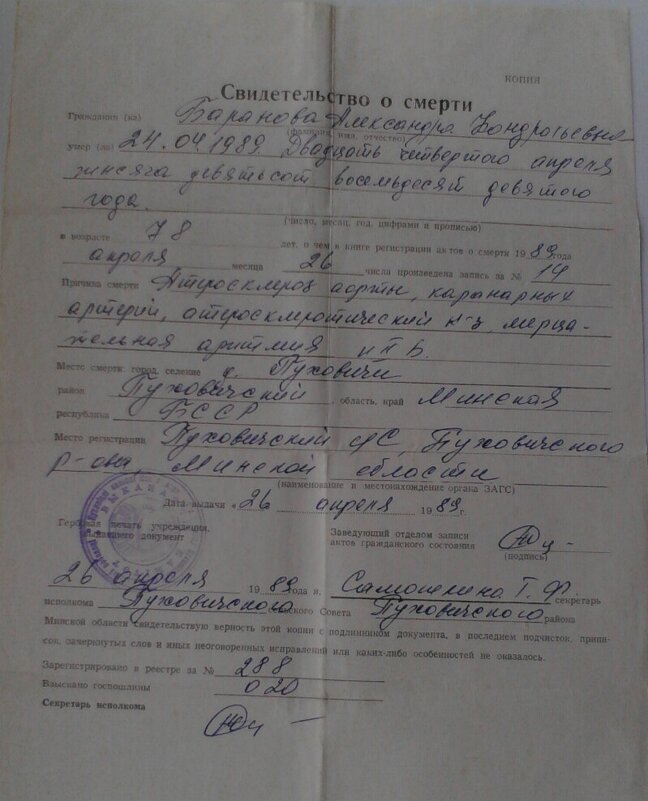 КОПИЯ
Свидетельство о смерти
Гражданин (ка) Баранова Александра Кондратьевна
(фамилия, имя, отчество)
умер (ла) 24.04.1989 Двадцать четвертого апреля
тысяча девятьсот восемьдесят девятого
года.
(число, месяц, год, цифрами и прописью)
в возрасте 78 лет, о чем в книге регистрации актов о смерти 1989 года
апреля месяца 26 числа произведена запись за № 14
Причина смерти Атеросклероз аорты, каранарных
артерий, атеросклеротический к-з, мерца-
тельная аритмия II Б.
Место смерти: город, селение д. Пуховичи
район Пуховичский, область, край Минская
республика БССР
Место регистрации Пуховичский с/С, Пуховичского
р-она, Минской области
(наименование и местонахождение органа ЗАГС)
Дата выдачи «26 апреля 1989 г.
Гербовая печать учреждения,
выдавшего документ
Заведующий отделом записи
актов гражданского состояния
(подпись)
26 апреля 1989 года я, Самошкина Т. Ф. секретарь
исполкома Пуховичского сельского Совета Пуховичского района
Минской области свидетельствую верность этой копии с подлинником документа, в последнем подчисток, припи-
сок, зачеркнутых слов и иных неоговоренных исправлений или каких-либо особенностей не оказалось.
Зарегистрировано в реестре за № 288
Взыскано госпошлины 0 20
Секретарь исполкома